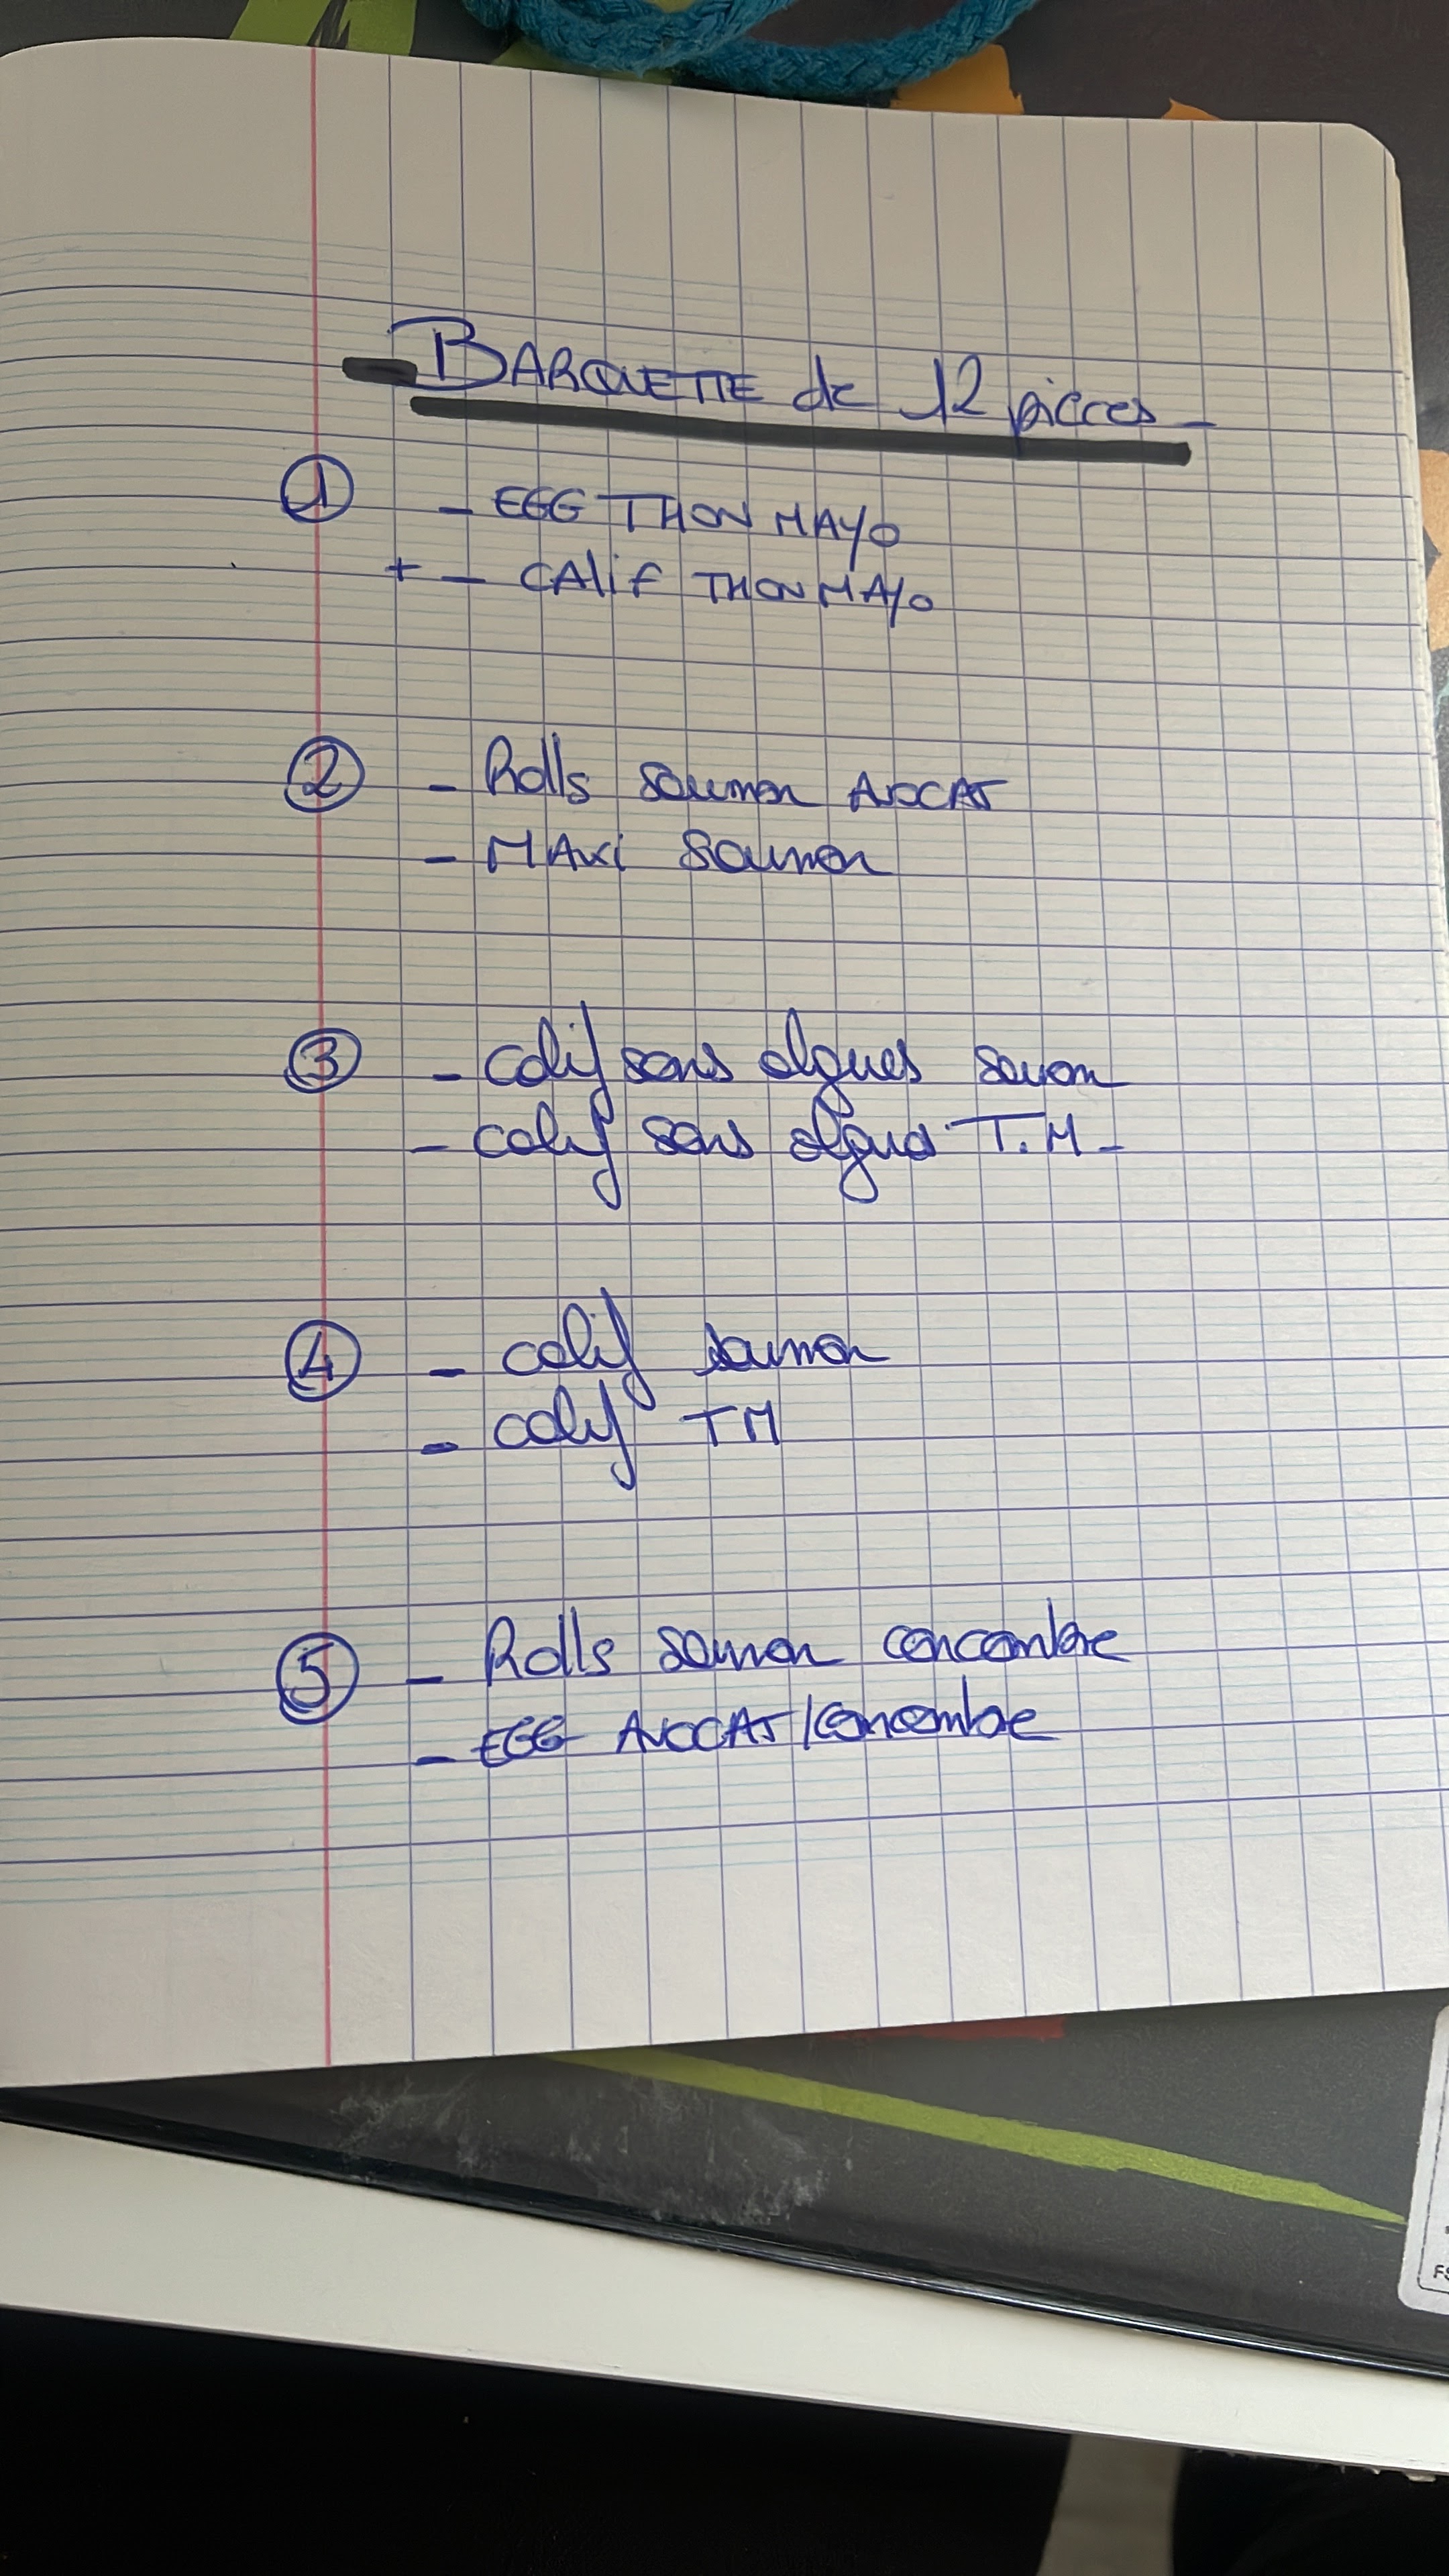 BARQUETTE de 12 pièces
① - EGG THON MAYO
+ - CAlif THON MAYO
② - Rolls saumon AVOCAT
- MAki Saumon
③ - calif sans algues saumon
- calif sans algues T.M -
④ - calif saumon
- calif TM
⑤ - Rolls saumon concombre
- EGG AVOCAT/concombre
FS